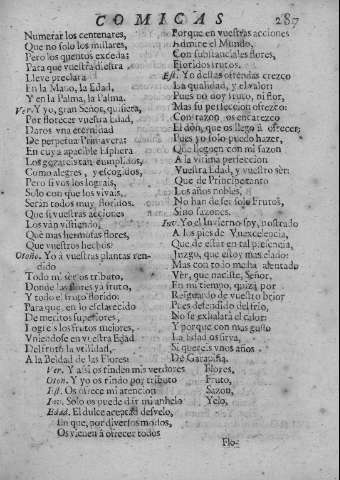 COMICAS 287
Numerar los centenares,
Que no solo los millares,
Pero los quentos exceda;
Para que vuestra diestra
Lleve preclara
En la Mano, la Edad,
Y en la Palma, la Palma.
Ver. Y yo, gran Señor, quisiera,
Por florecer vuestra Edad,
Daros vna eternidad
De perpetua Primavera:
En cuya apacible Esphera
Los gozarais tan cumplidos,
Como alegres, y escogidos,
Pero si vos los lograis,
Solo con que los vivais,
Serán todos muy floridos.
Que si vuestras acciones
Los ván vistiendo,
Què mas hermosas flores,
Que vuestros hechos?
Otoño. Yo à vuestras plantas ren-
dido
Todo mi ser os tributo,
Donde las flores yà fruto,
Y todo el fruto florido:
Para que, en lo esclarecido
De meritos superiores,
Logreis los frutos mejores,
Vniendose en vuestra Edad
Del fruto la vtilidad,
A la Beldad de las Flores:
Porque en vuestras acciones
Admire el Mundo,
Con substanciales flores,
Floridos frutos.
Est. Yo destas ofrendas crezco
La qualidad, y el valor:
Pues no doy fruto, ni flor,
Mas su perfeccion ofrezco:
Con razon os encarezco
El dòn, que os llego à ofrecer;
Pues yo solo puedo hazer,
Que lleguen con mi sazon
A la vltima perfeccion
Vuestra Edad, y vuestro sèr:
Que de Principe tanto
Los años nobles,
No han de ser solo Frutos,
Sino sazones.
Inv. Yo el Invierno soy, postrado
A los pies de Vuexcelencia,
Que de estàr en tal presencia,
Juzgo, que estoy mas elado:
Mas con todo me ha alentado
Vèr, que naciste, Señor,
En mi tiempo, quizà por
Resguardo de vuestro brio
Pues defendido del frio,
No se exhalarà el calor:
Y porque con mas gusto
La Edad os sirva,
Si quereis vnos años
De Garapiña.
Ver. Y assi os rinden mis verdores Flores,
Oton. Y yo os rindo por tributo Fruto,
Est. Os ofrece mi atencion Sazon,
Inv. Solo os puede dàr mi anhelo Yelo,
Edad. El dulce aceptad desvelo,
En que, por diversos modos,
Os vienen à ofrecer todos
Flo-